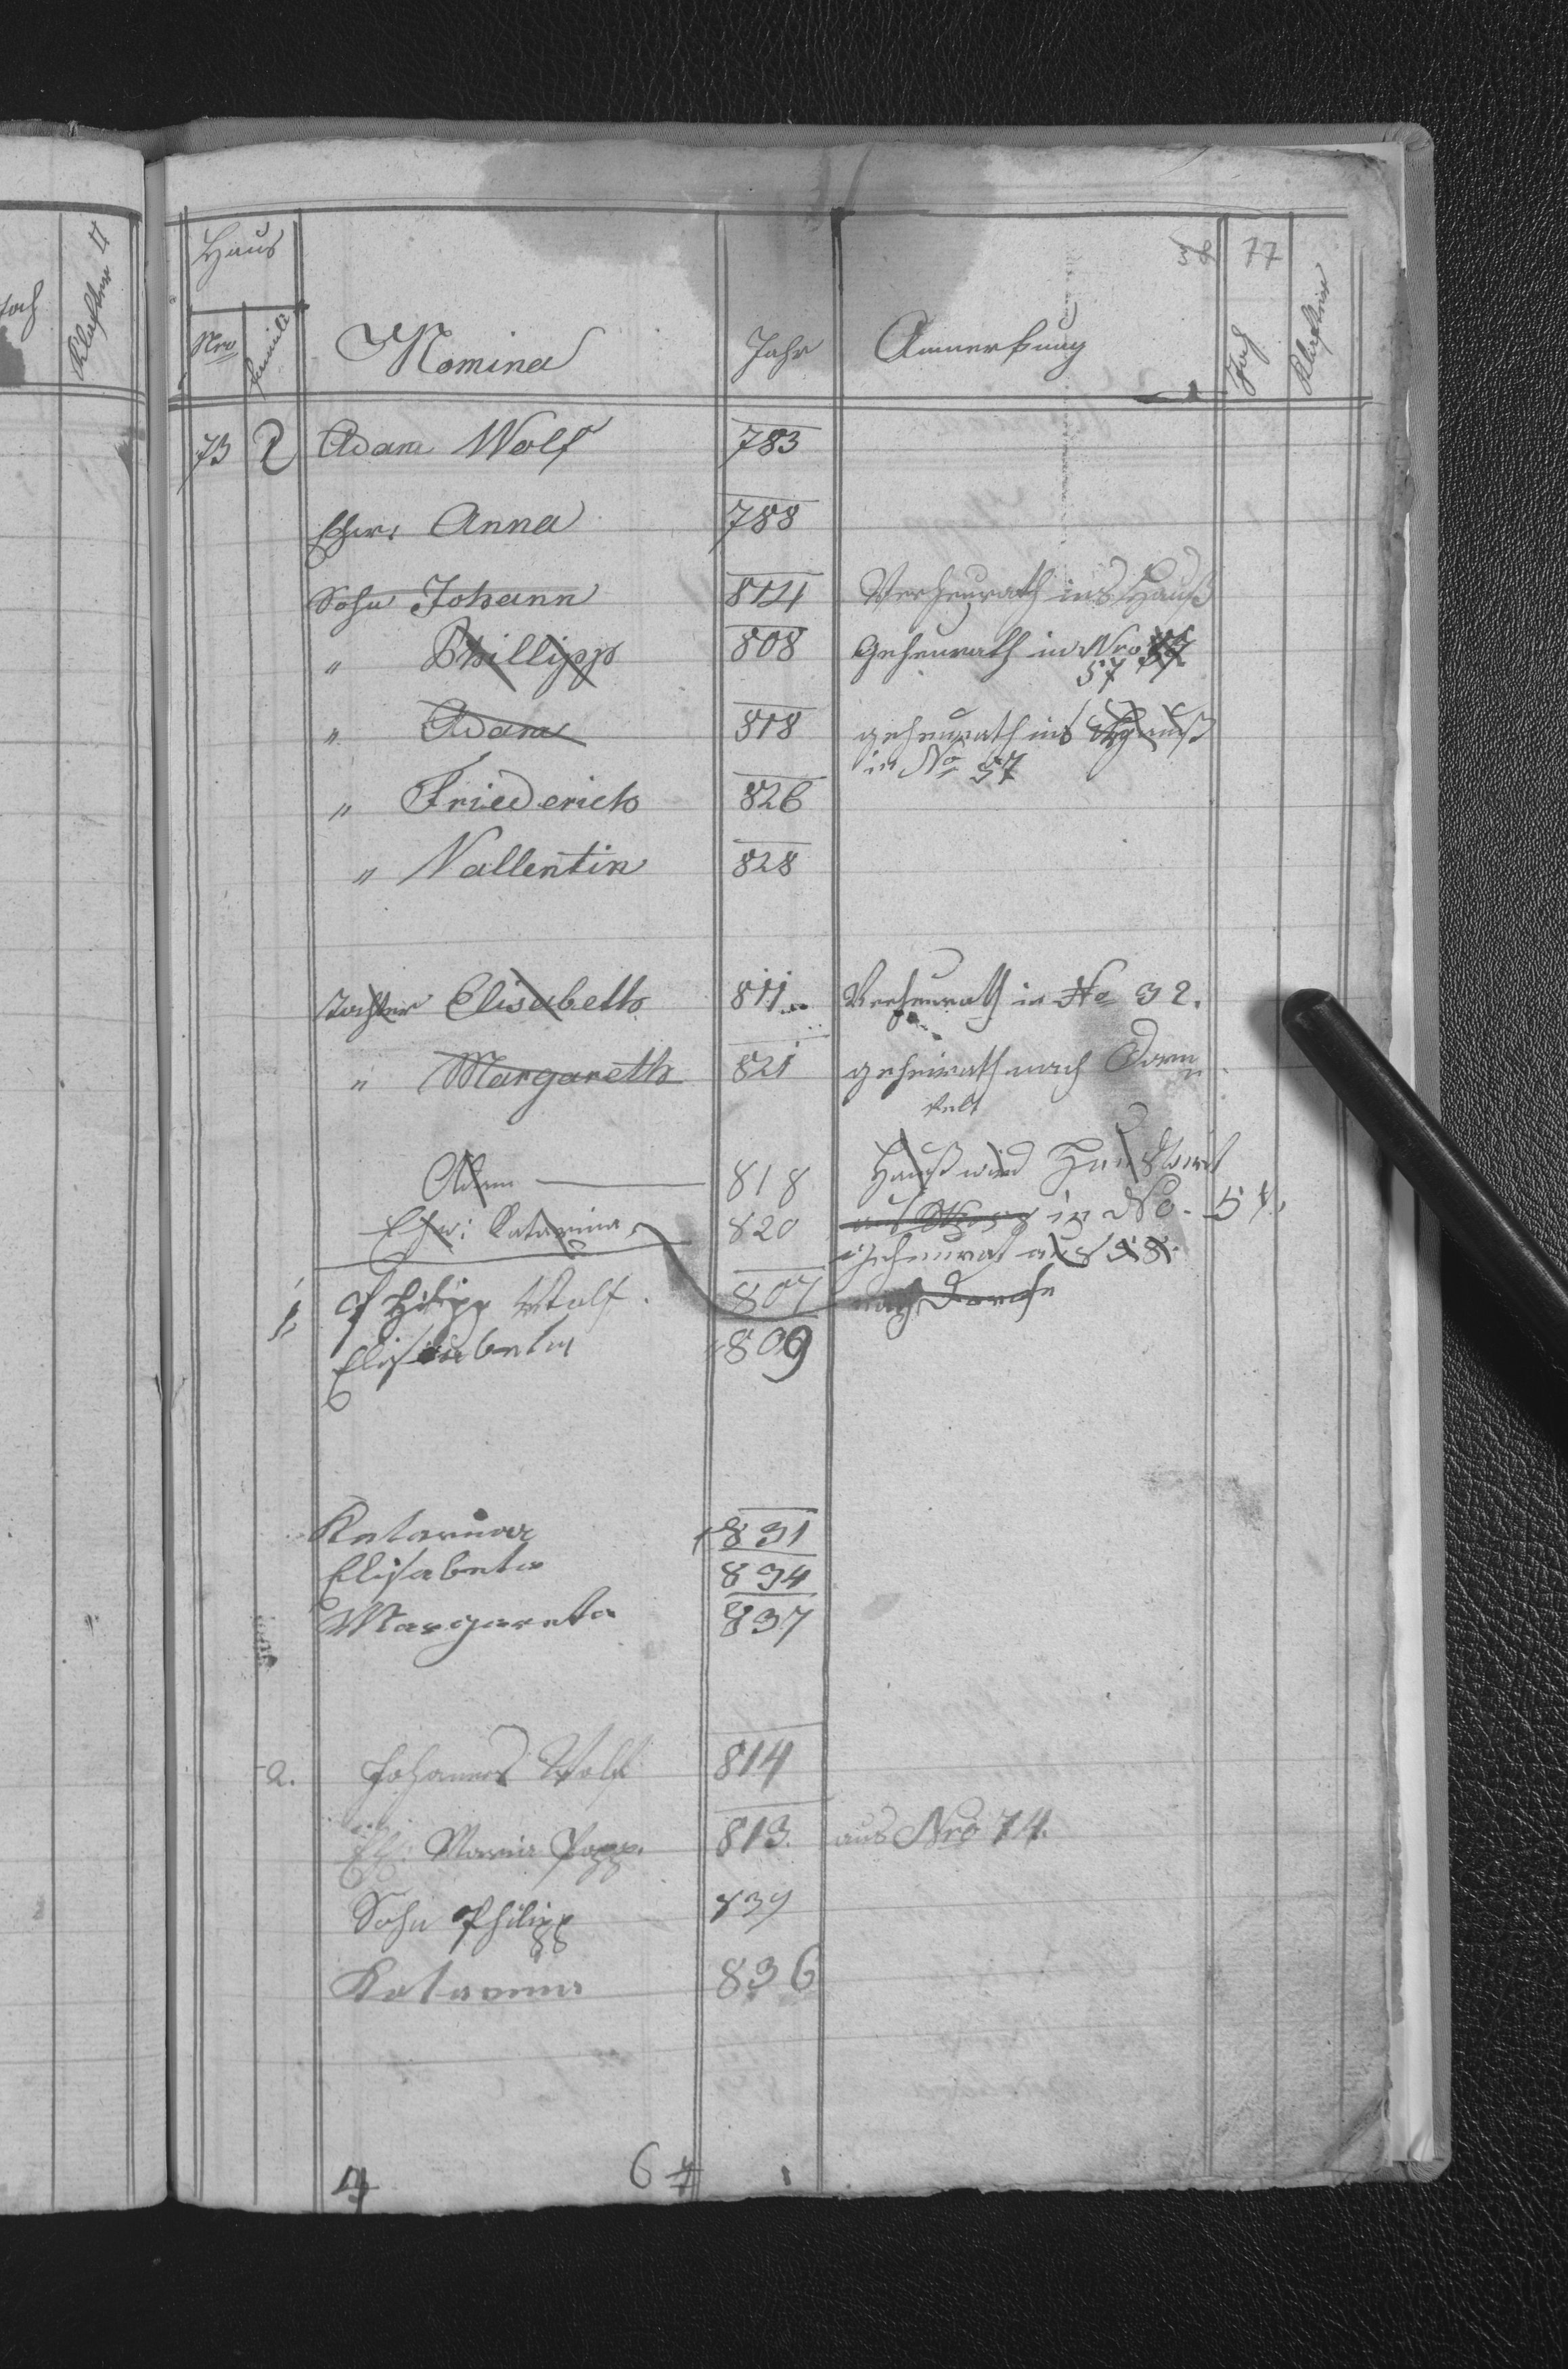 Joch
Klafter
77
Haus
Nro
Familie
Nomina
Jahr
Anmerkung
Joch
Klafter
73 2 Adam Wolf 783
Ehw: Anna 788
Sohn Johann 814 Verheurath ins Hauß
" Phillipp 808 Geheurath in Nro
57
" Adam 818 geheurath ins
in No 57
" Friederich 826
" Vallentin 828
Tochter Elisabeth 811 Verheurath in No 32.
" Margareth 821 geheirath nach
Adam 818 Hauß wird
Ehw: Katarina 820 in No.
1 Philipp Wolf. 807 nach
Elisabeta 809
Katarina 831
Elisabeta 834
Margareta 837
2. Johannes Wolf 814
Eh: Maria Popp. 813. aus Nro 74.
Sohn Philipp 839
Katarina 836
4 6